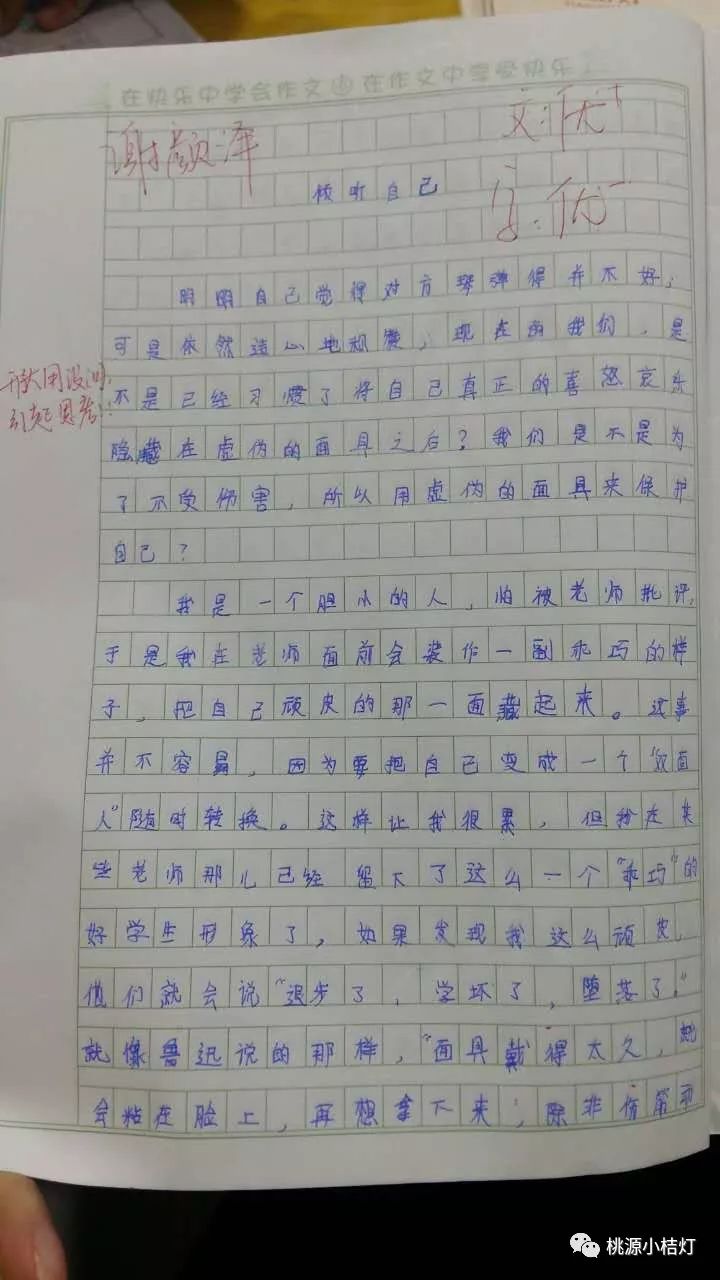 在快乐中学会作文 在作文中享受快乐
谢颜泽
文:优+
字:优-
倾听自己
明明自己觉得对方琴弹得并不好,
可是依然违心地称赞;现在的我们,是
不是已经习惯了将自己真正的喜怒哀乐
隐藏在虚伪的面具之后?我们是不是为
了不受伤害,所以用虚伪的面具来保护
自己?
开头用设问,
引起思考!
我是一个胆小的人,怕被老师批评,
于是我在老师面前会装作一副乖巧的样
子,把自己顽皮的那一面藏起来。这事
并不容易,因为要把自己变成一个“双面
人”随时转换。这样让我很累,但我在某
些老师那儿已经留下了这么一个“乖巧”的
好学生形象了,如果发现我这么顽皮,
他们就会说“退步了,学坏了,堕落了。”
就像鲁迅说的那样,“面具戴得太久,就
会粘在脸上,再想拿下来,除非伤筋动
桃源小桔灯